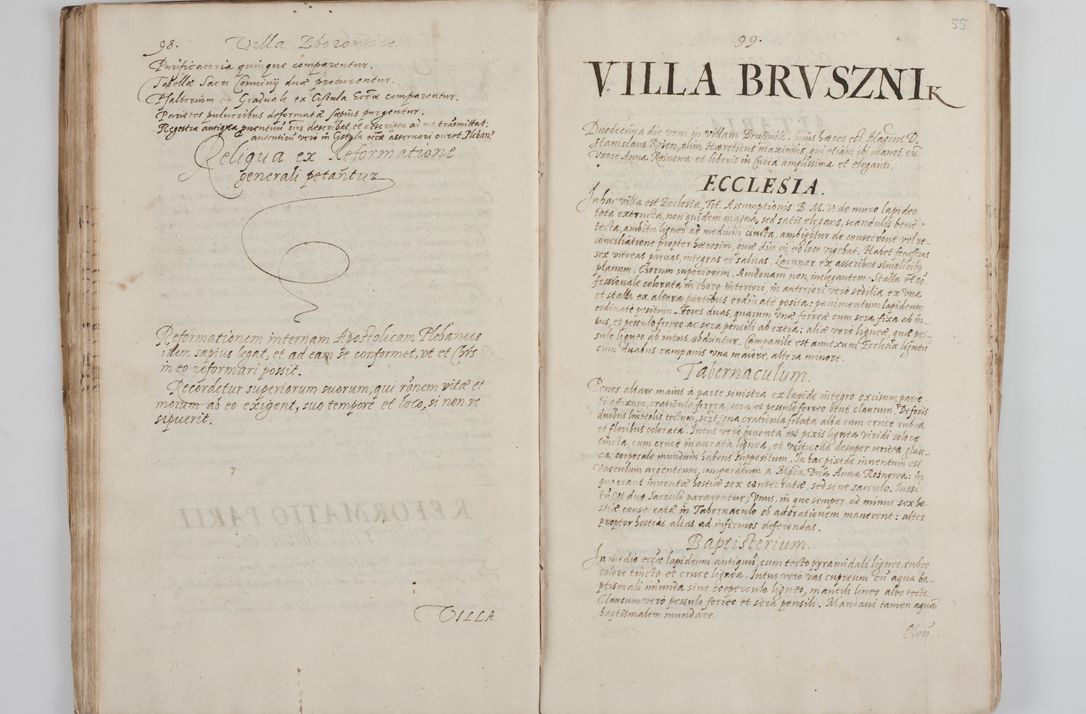 98. Villa Zborow
Purificatoria quinque comparentur.
Tabellæ Sacri Convivij duæ procurentur.
Psalterium et Graduale ex Cistula Eccæ comparentur.
Parietes pulveribus deformatæ sæpius purgentur.
Regestra antiqua proventuū om̄ describat et descripta ad me transmittat;
autenticū vero in Cistula eccæ asservari curet Pleban9
Reliqua ex Reformatione
generali petantur
Reformationem internam Apostolicam Plebanus
idem sæpius legat, et ad eam se conformet, vt et Chrs
in eo reformari possit.
Recordetur superiorum suorum, qui rōnem vitæ et
morum ab eo exigent, suo tempore et loco, si non re
sipuerit.
VILLA
55
99.
VILLA BRVSZNIK
Duodecima die veni in villam Brusnik. Cuius hæres est Magcus D.
Stanislaus Roien, olim Hæreticus maximus, qui etiam ibi manet cū
Vxore Anna Roinowa et liberis in Curia amplissima et eleganti.
ECCLESIA.
In hac villa est Ecclesia, Tit. Assumptionis B. M. V. de muro lapideo
tota extructa, non quidem magna, sed satis elegans, scandulis bene
tecta, ambitu ligneo ad medium cincta, ambigitur de consecrōne vel re
conciliatione propter hæresim, quæ diu in eo loco vigebat. Habet fenestras
sex vitreas paruas, integras et saluas. Lacunar ex asseribus simplicibus
planum. Chorum superiorem. Ambonam non inelegantem. Stalla et Co
fessionale colorata in choro interiori, in anteriori vero sedilia ex vna
et stalla ex altera partibus ordinate posita: pavimentum lapideum
ordinate positum. Fores duas, quarum vnæ ferreæ cum sera fixa ab in
tus, et pessulo ferreo ac sera pensili ab extra: aliæ vero ligneæ, quæ pes
sulo ligneo ab intus obduntur. Campanile est annexum Ecclesiæ ligneū
cum duabus campanis vna maiore, altera minore.
Tabernaculum.
Penes altare maius a parte sinistra ex lapide integro excisum, parie
ti affixum, craticula ferrea, sera et pessulo ferreo bene clausum. De foris
duobus linteolis tectum, scilt vna craticula filata alba cum cruce rubea
et floribus colorata. Intus vero inventa est pixis lignea viridi colore
tincta cum cruce inaurata lignea, et vesticella desuper sericea glau
ca, corporale mundum habens suppositum. In hac pixide inventum est
Vasculum argenteum, comparatum a Mgca Dnā Anna Rosnowa: in
quo erant inventæ hostiæ sex consecratæ sed sine sacculo. Iussi
vt duo Sacculi pararentur; Vnus, in quo semper ad minus sex ho
stiæ consecratæ in Tabernaculo ob adorationem manerent: alter
propter hostias, alias ad infirmos deferendas.
Baptisterium.
In medio eccæ lapideum antiquū, cum tecto pyramidali ligneo, rubeo
colore tincto et cruce lignea. Intus vero vas cupreum cū aqua ba
ptismali munda sine cooperculo ligneo, mantili lineo albo tecta.
Clausum vero pessulo ferreo et sera pensili. Mandaui tamen aquā
baptismalem mundare.
Oleū